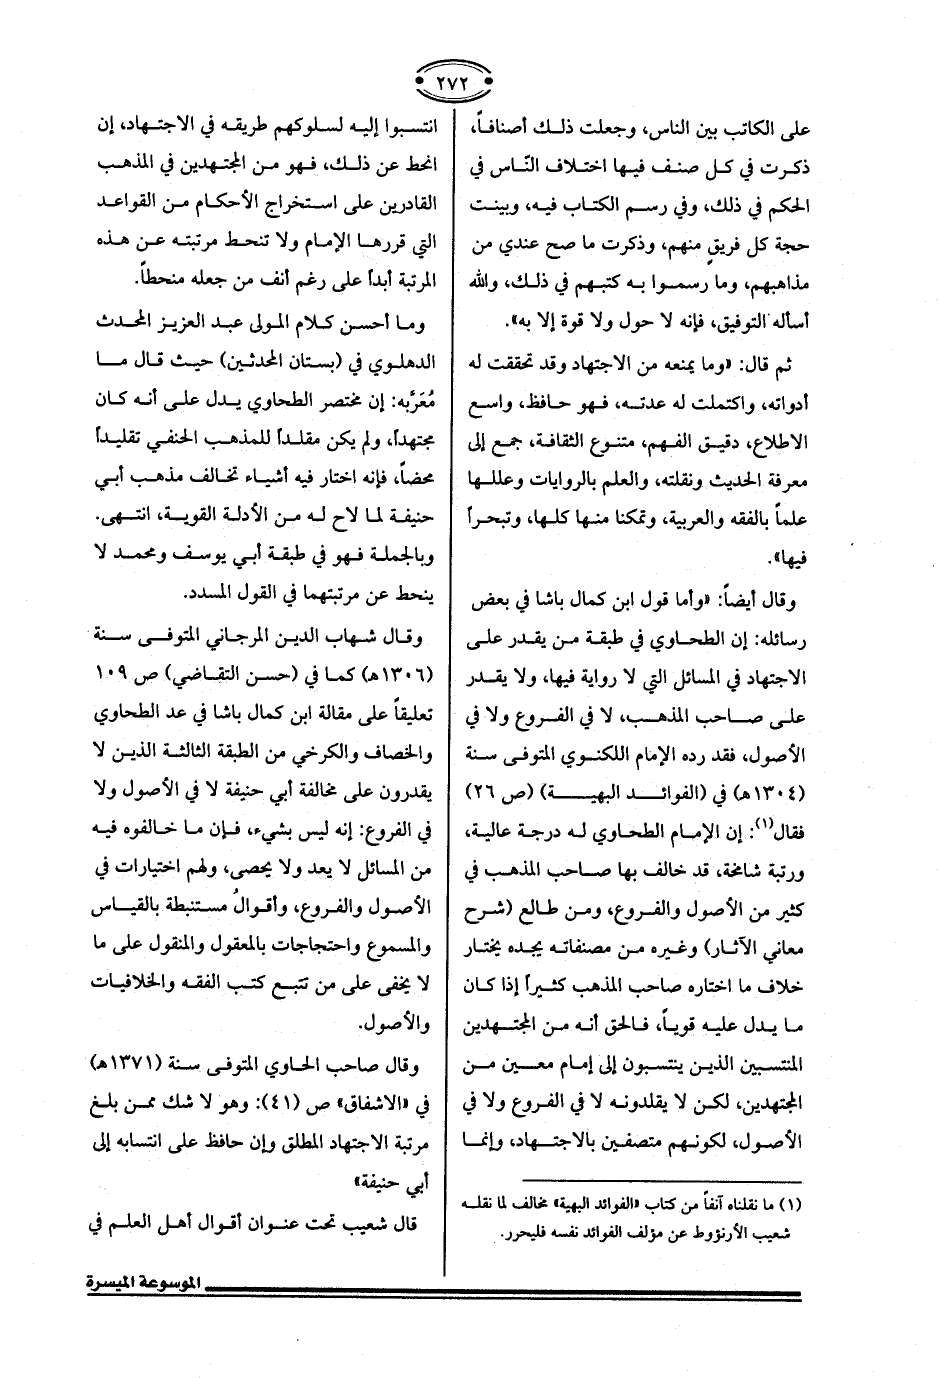 ٢٧٢
على الكاتب بين الناس، وجعلت ذلك أصنافاً،
ذكرت في كل صنف فيها اختلاف النّاس في
الحكم في ذلك، وفي رسم الكتاب فيه، وبينت
حجة كل فريق منهم، وذكرت ما صح عندي من
مذاهبهم، وما رسموا به كتبهم في ذلك، والله
أسأله التوفيق، فإنه لا حول ولا قوة إلا به».
ثم قال: «وما يمنعه من الاجتهاد وقد تحققت له
أدواته، واكتملت له عدته، فهو حافظ، واسع
الاطلاع، دقيق الفهم، متنوع الثقافة، جمع إلى
معرفة الحديث ونقلته، والعلم بالروايات وعللها
علماً بالفقه والعربية، وتمكنا منها كلها، وتبحراً
فيها».
وقال أيضاً: «وأما قول ابن كمال باشا في بعض
رسائله: إن الطحاوي في طبقة من يقدر على
الاجتهاد في المسائل التي لا رواية فيها، ولا يقدر
على صاحب المذهب، لا في الفروع ولا في
الأصول، فقد رده الإمام اللكنوي المتوفى سنة
(١٣٠٤هـ) في (الفوائد البهية) (ص ٢٦)
فقال(١): إن الإمام الطحاوي له درجة عالية،
ورتبة شامخة، قد خالف بها صاحب المذهب في
كثير من الأصول والفروع، ومن طالع (شرح
معاني الآثار) وغيره من مصنفاته يجده يختار
خلاف ما اختاره صاحب المذهب كثيراً إذا كان
ما يدل عليه قوياً، فالحق أنه من المجتهدين
المنتسبين الذين ينتسبون إلى إمام معين من
المجتهدين، لكن لا يقلدونه لا في الفروع ولا في
الأصول، لكونهم متصفين بالاجتهاد، وإنما
(١) ما نقلناه آنفاً من كتاب «الفوائد البهية» مخالف لما نقله
شعيب الأرنؤوط عن مؤلف الفوائد نفسه فليحرر.
انتسبوا إليه لسلوكهم طريقه في الاجتهاد، إن
انحط عن ذلك، فهو من المجتهدين في المذهب
القادرين على استخراج الأحكام من القواعد
التي قررها الإمام ولا تنحط مرتبته عن هذه
المرتبة أبداً على رغم أنف من جعله منحطاً.
وما أحسن كلام المولى عبد العزيز المحدث
الدهلوي في (بستان المحدثين) حيث قال ما
مُعَرَّبه: إن مختصر الطحاوي يدل على أنه كان
مجتهداً، ولم يكن مقلداً للمذهب الحنفي تقليداً
محضاً، فإنه اختار فيه أشياء تخالف مذهب أبي
حنيفة لما لاح له من الأدلة القوية، انتهى.
وبالجملة فهو في طبقة أبي يوسف ومحمد لا
ينحط عن مرتبتهما في القول المسدد.
وقال شهاب الدين المرجاني المتوفى سنة
(١٣٠٦هـ) كما في (حسن التقاضي) ص ١٠٩
تعليقاً على مقالة ابن كمال باشا في عد الطحاوي
والخصاف والكرخي من الطبقة الثالثة الذين لا
يقدرون على مخالفة أبي حنيفة لا في الأصول ولا
في الفروع: إنه ليس بشيء، فإن ما خالفوه فيه
من المسائل لا يعد ولا يحصى، ولهم اختيارات في
الأصول والفروع، وأقوالُ مستنبطة بالقياس
والمسموع واحتجاجات بالمعقول والمنقول على ما
لا يخفى على من تتبع كتب الفقه والخلافيات
والأصول.
وقال صاحب الحاوي المتوفى سنة (١٣٧١هـ)
في «الاشفاق» ص (٤١): وهو لا شك ممن بلغ
مرتبة الاجتهاد المطلق وإن حافظ على انتسابه إلى
أبي حنيفة»
قال شعيب تحت عنوان أقوال أهل العلم في
الموسوعة الميسرة